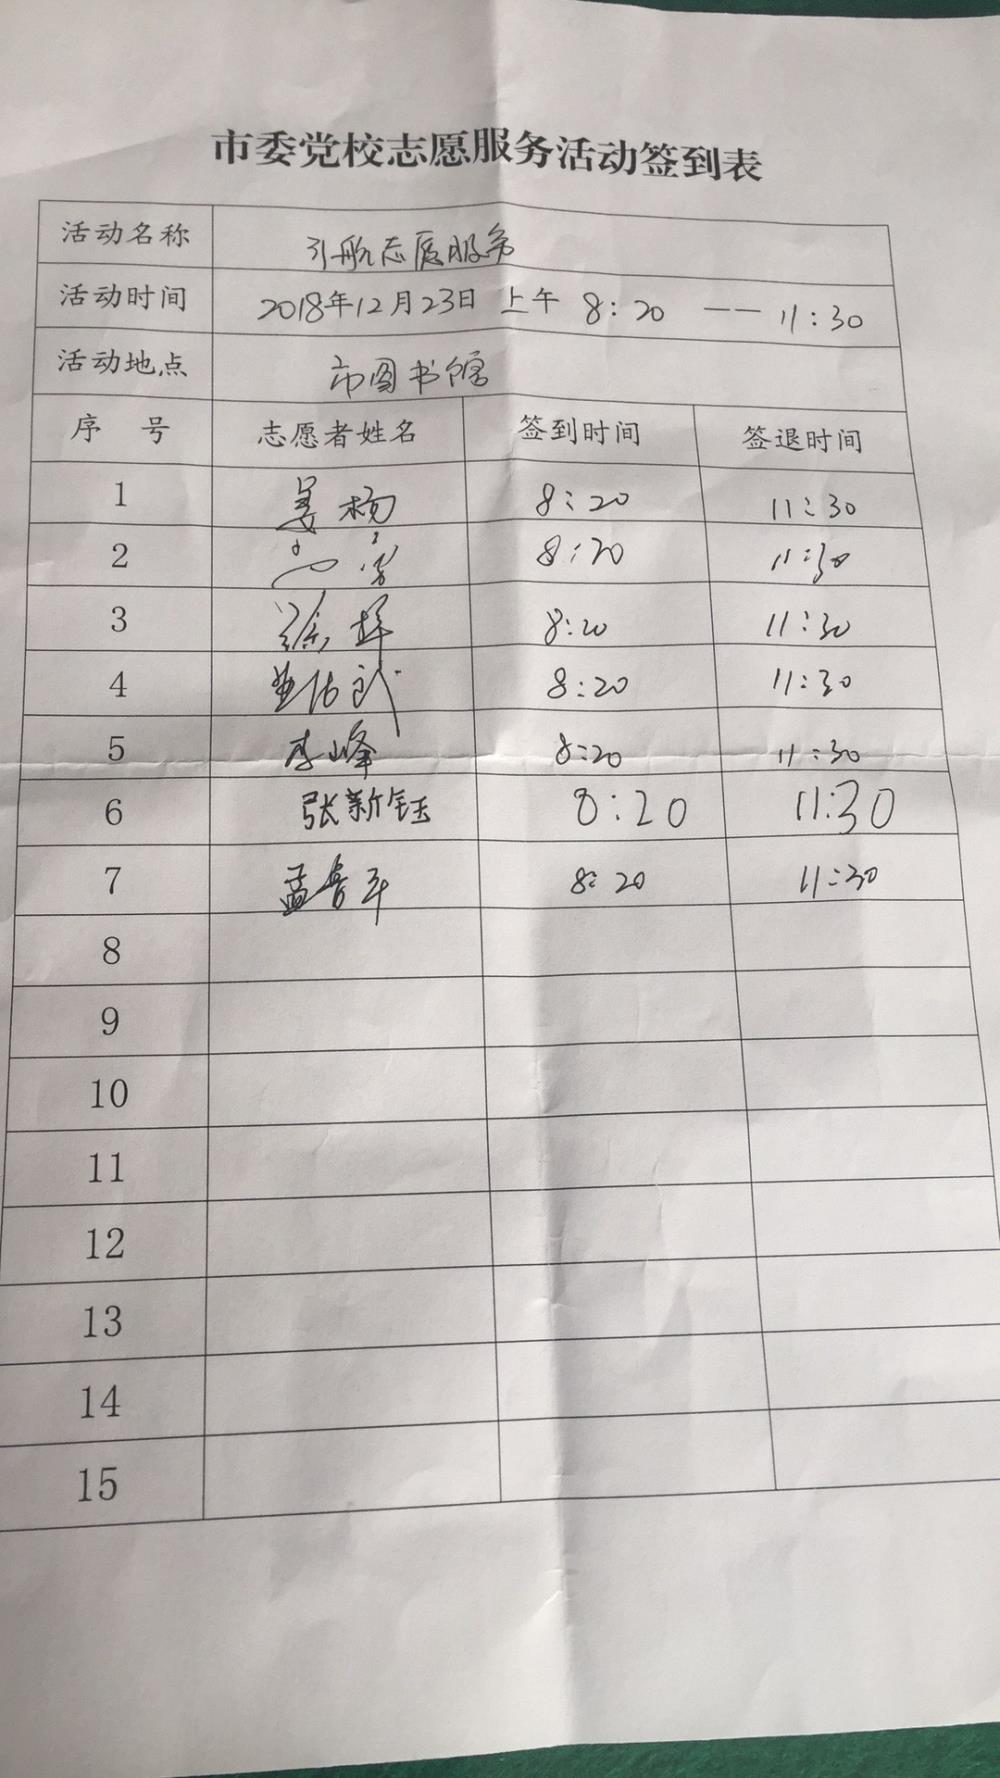 市委党校志愿服务活动签到表
活动名称 引航志愿服务
活动时间 2018年12月23日 上午 8:20 —— 11:30
活动地点 市图书馆
序 号 志愿者姓名 签到时间 签退时间
1 姜杨 8:20 11:30
2 8:20 11:30
3 徐辉 8:20 11:30
4 8:20 11:30
5 李峰 8:20 11:30
6 张新钰 8:20 11:30
7 孟鲁军 8:20 11:30
8
9
10
11
12
13
14
15